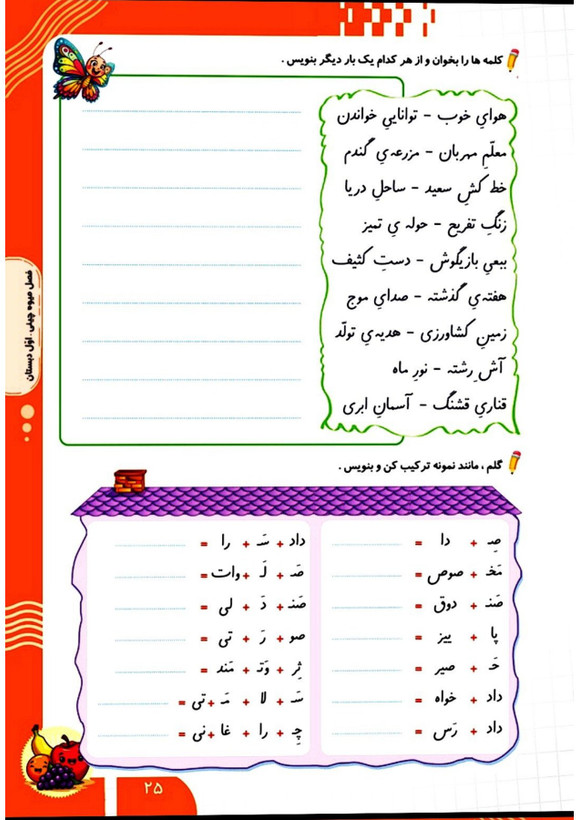 کلمه ها را بخوان و از هر کدام یک بار دیگر بنویس .
هوایِ خوب - تواناییِ خواندن
معلّمِ مهربان - مزرعه‌یِ گندم
خط کشِ سعید - ساحلِ دریا
زنگِ تفریح - حوله یِ تمیز
ببعیِ بازیگوش - دستِ کثیف
هفته‌یِ گذشته - صدایِ موج
زمینِ کشاورزی - هدیه‌یِ تولّد
آشِ رشته - نورِ ماه
قناریِ قشنگ - آسمانِ ابری
فصل میوه چینی . اوّل دبستان
گلم ، مانند نمونه ترکیب کن و بنویس .
صِـ + دا =
مَخـ + صوص =
صَنـ + دوق =
پا + ییز =
حَـ + صیر =
داد + خواه =
داد + رَس =
داد + سَـ + را =
صَـ + لَـ + وات =
صَنـ + دَ + لی =
صو + رَ + تی =
ثِر + وَتـ + مَند =
سَـ + لا + مَـ + تی =
چِـ + را + غا + نی =
۲۵